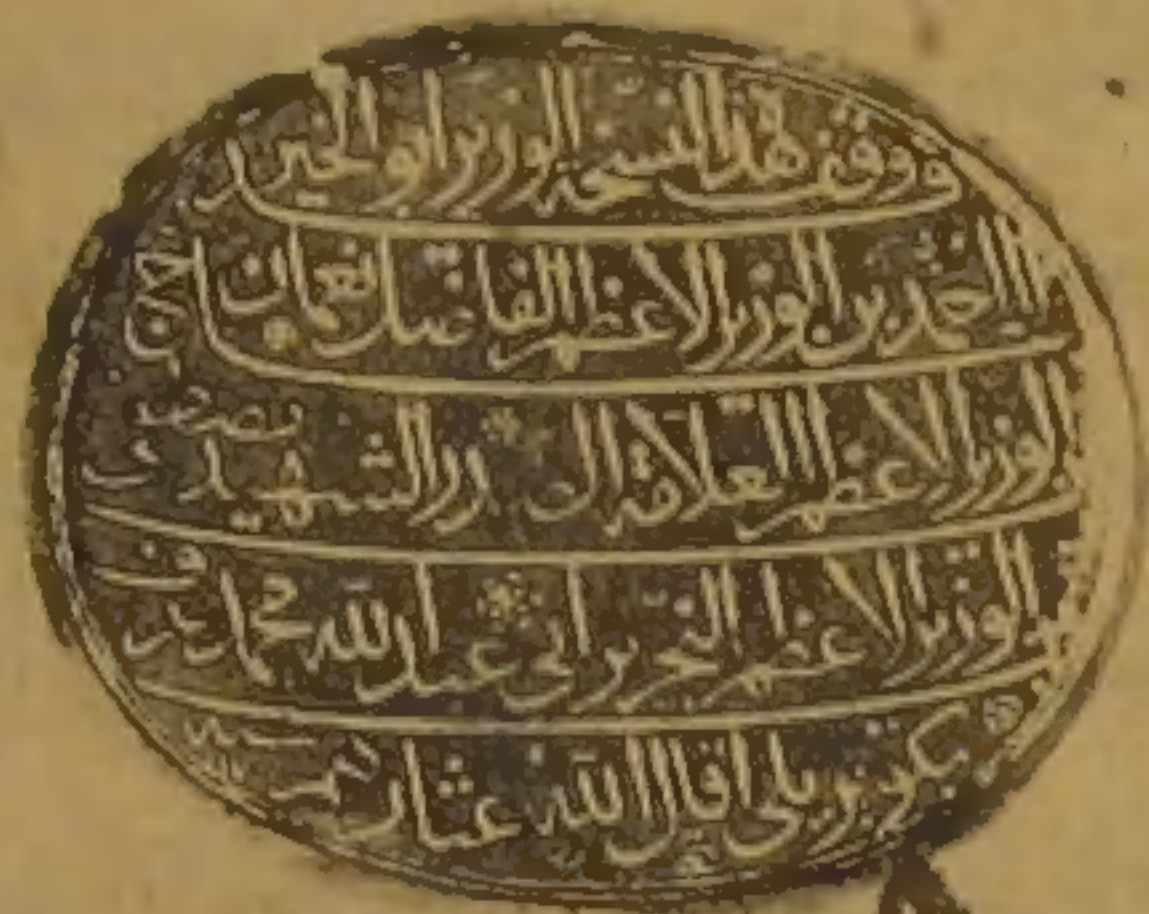 وقف هذا النسخة الوزير ابو الخير
الحاج احمد بن الوزير الاعظم الفاضل نعمان بن
الوزير الاعظم العلامة الصدر الشهيد مصطفى بن
الوزير الاعظم النحرير ابي عبد الله محمد عرف
بكوبريلى اقال الله عثارهم